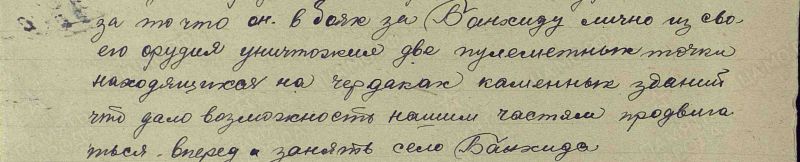 за то что он. в боях за Банхиду лично из сво-
его орудия уничтожил две пулеметных точки
находящихся на чердаках каменных зданий
что дало возможность нашим частям продвига
ться вперед и занять село Банхида